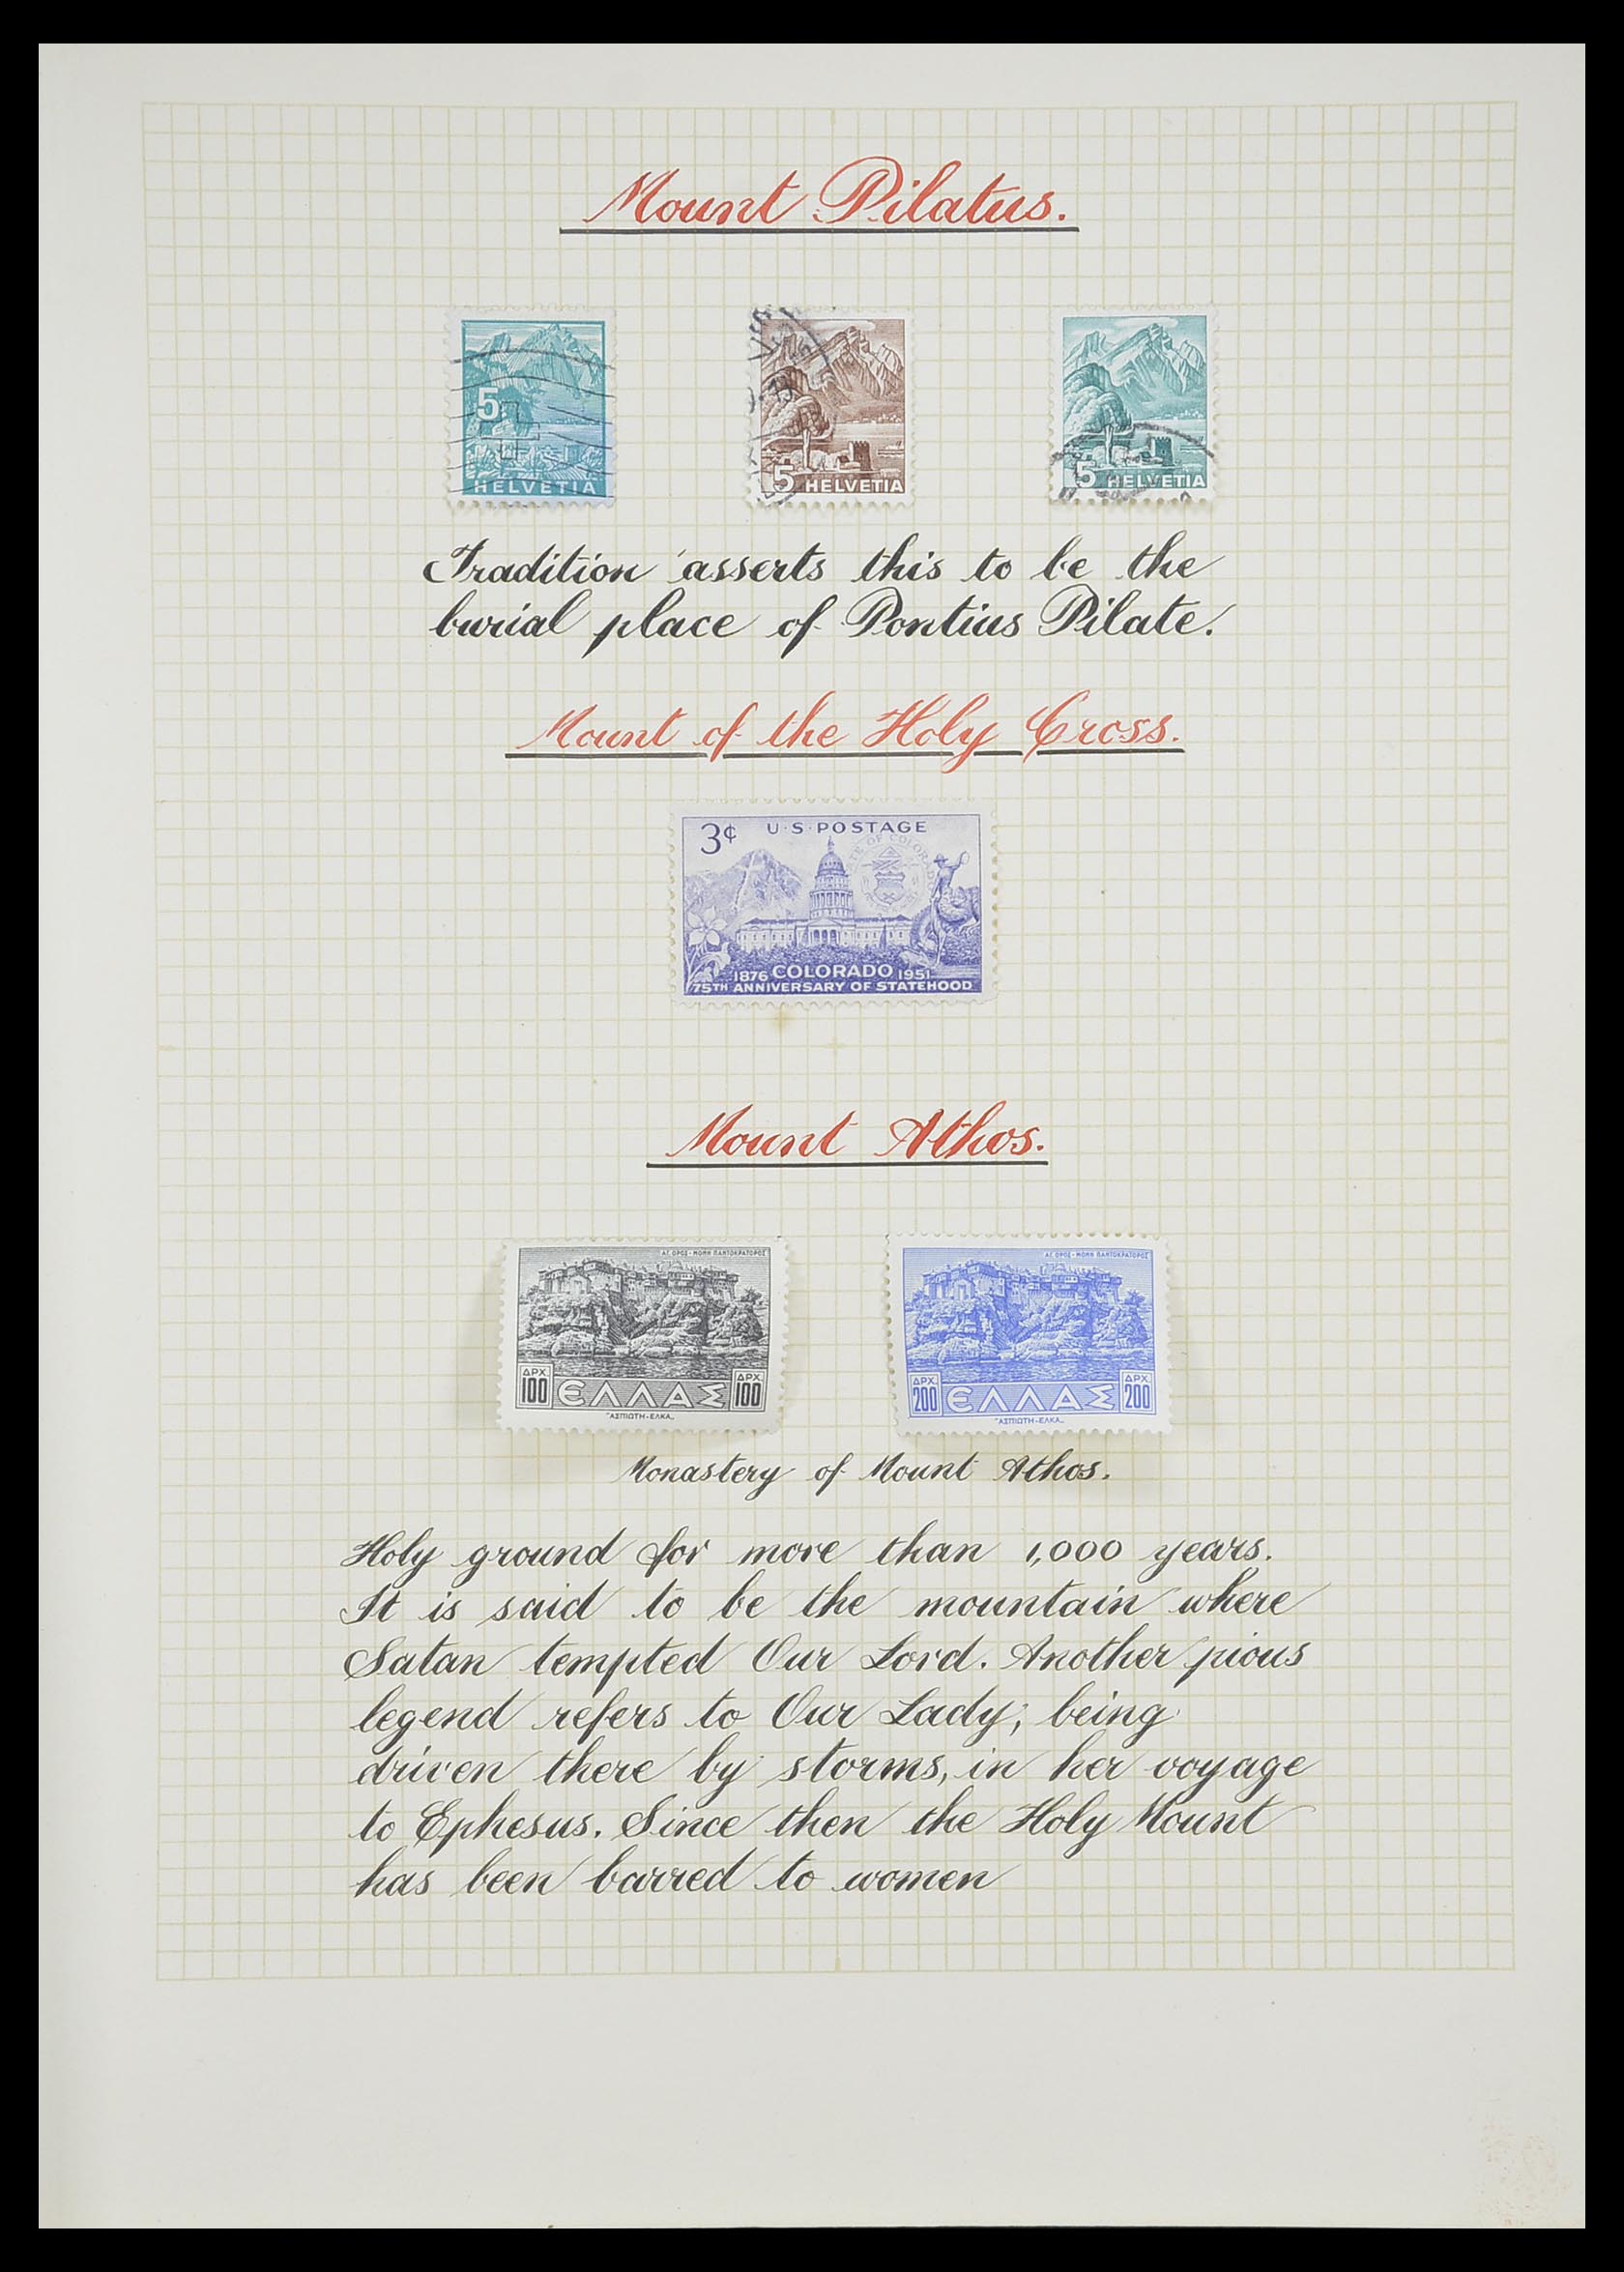 Mount Pilatus.
5
HELVETIA
5 HELVETIA
5 HELVETIA
Tradition asserts this to be the
burial place of Pontius Pilate.
Mount of the Holy Cross.
3¢ U·S·POSTAGE
STATE OF COLORADO
1876 COLORADO 1951
75TH ANNIVERSARY OF STATEHOOD
Mount Athos.
ΑΓ. ΟΡΟΣ - ΜΟΝΗ ΠΑΝΤΟΚΡΑΤΟΡΟΣ
ΔΡΧ. 100 ΕΛΛΑΣ ΔΡΧ. 100
"ΑΣΠΙΩΤΗ-ΕΛΚΑ"
ΑΓ. ΟΡΟΣ - ΜΟΝΗ ΠΑΝΤΟΚΡΑΤΟΡΟΣ
ΔΡΧ. 200 ΕΛΛΑΣ ΔΡΧ. 200
"ΑΣΠΙΩΤΗ-ΕΛΚΑ"
Monastery of Mount Athos.
Holy ground for more than 1,000 years.
It is said to be the mountain where
Satan tempted Our Lord. Another pious
legend refers to Our Lady; being
driven there by storms, in her voyage
to Ephesus. Since then the Holy Mount
has been barred to women